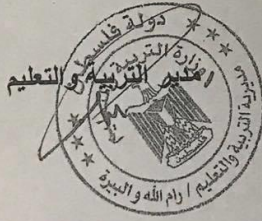 دولة فلسطين
وزارة التربية
مدير التربية والتعليم
فلسطين
مديرية التربية والتعليم / رام الله والبيرة